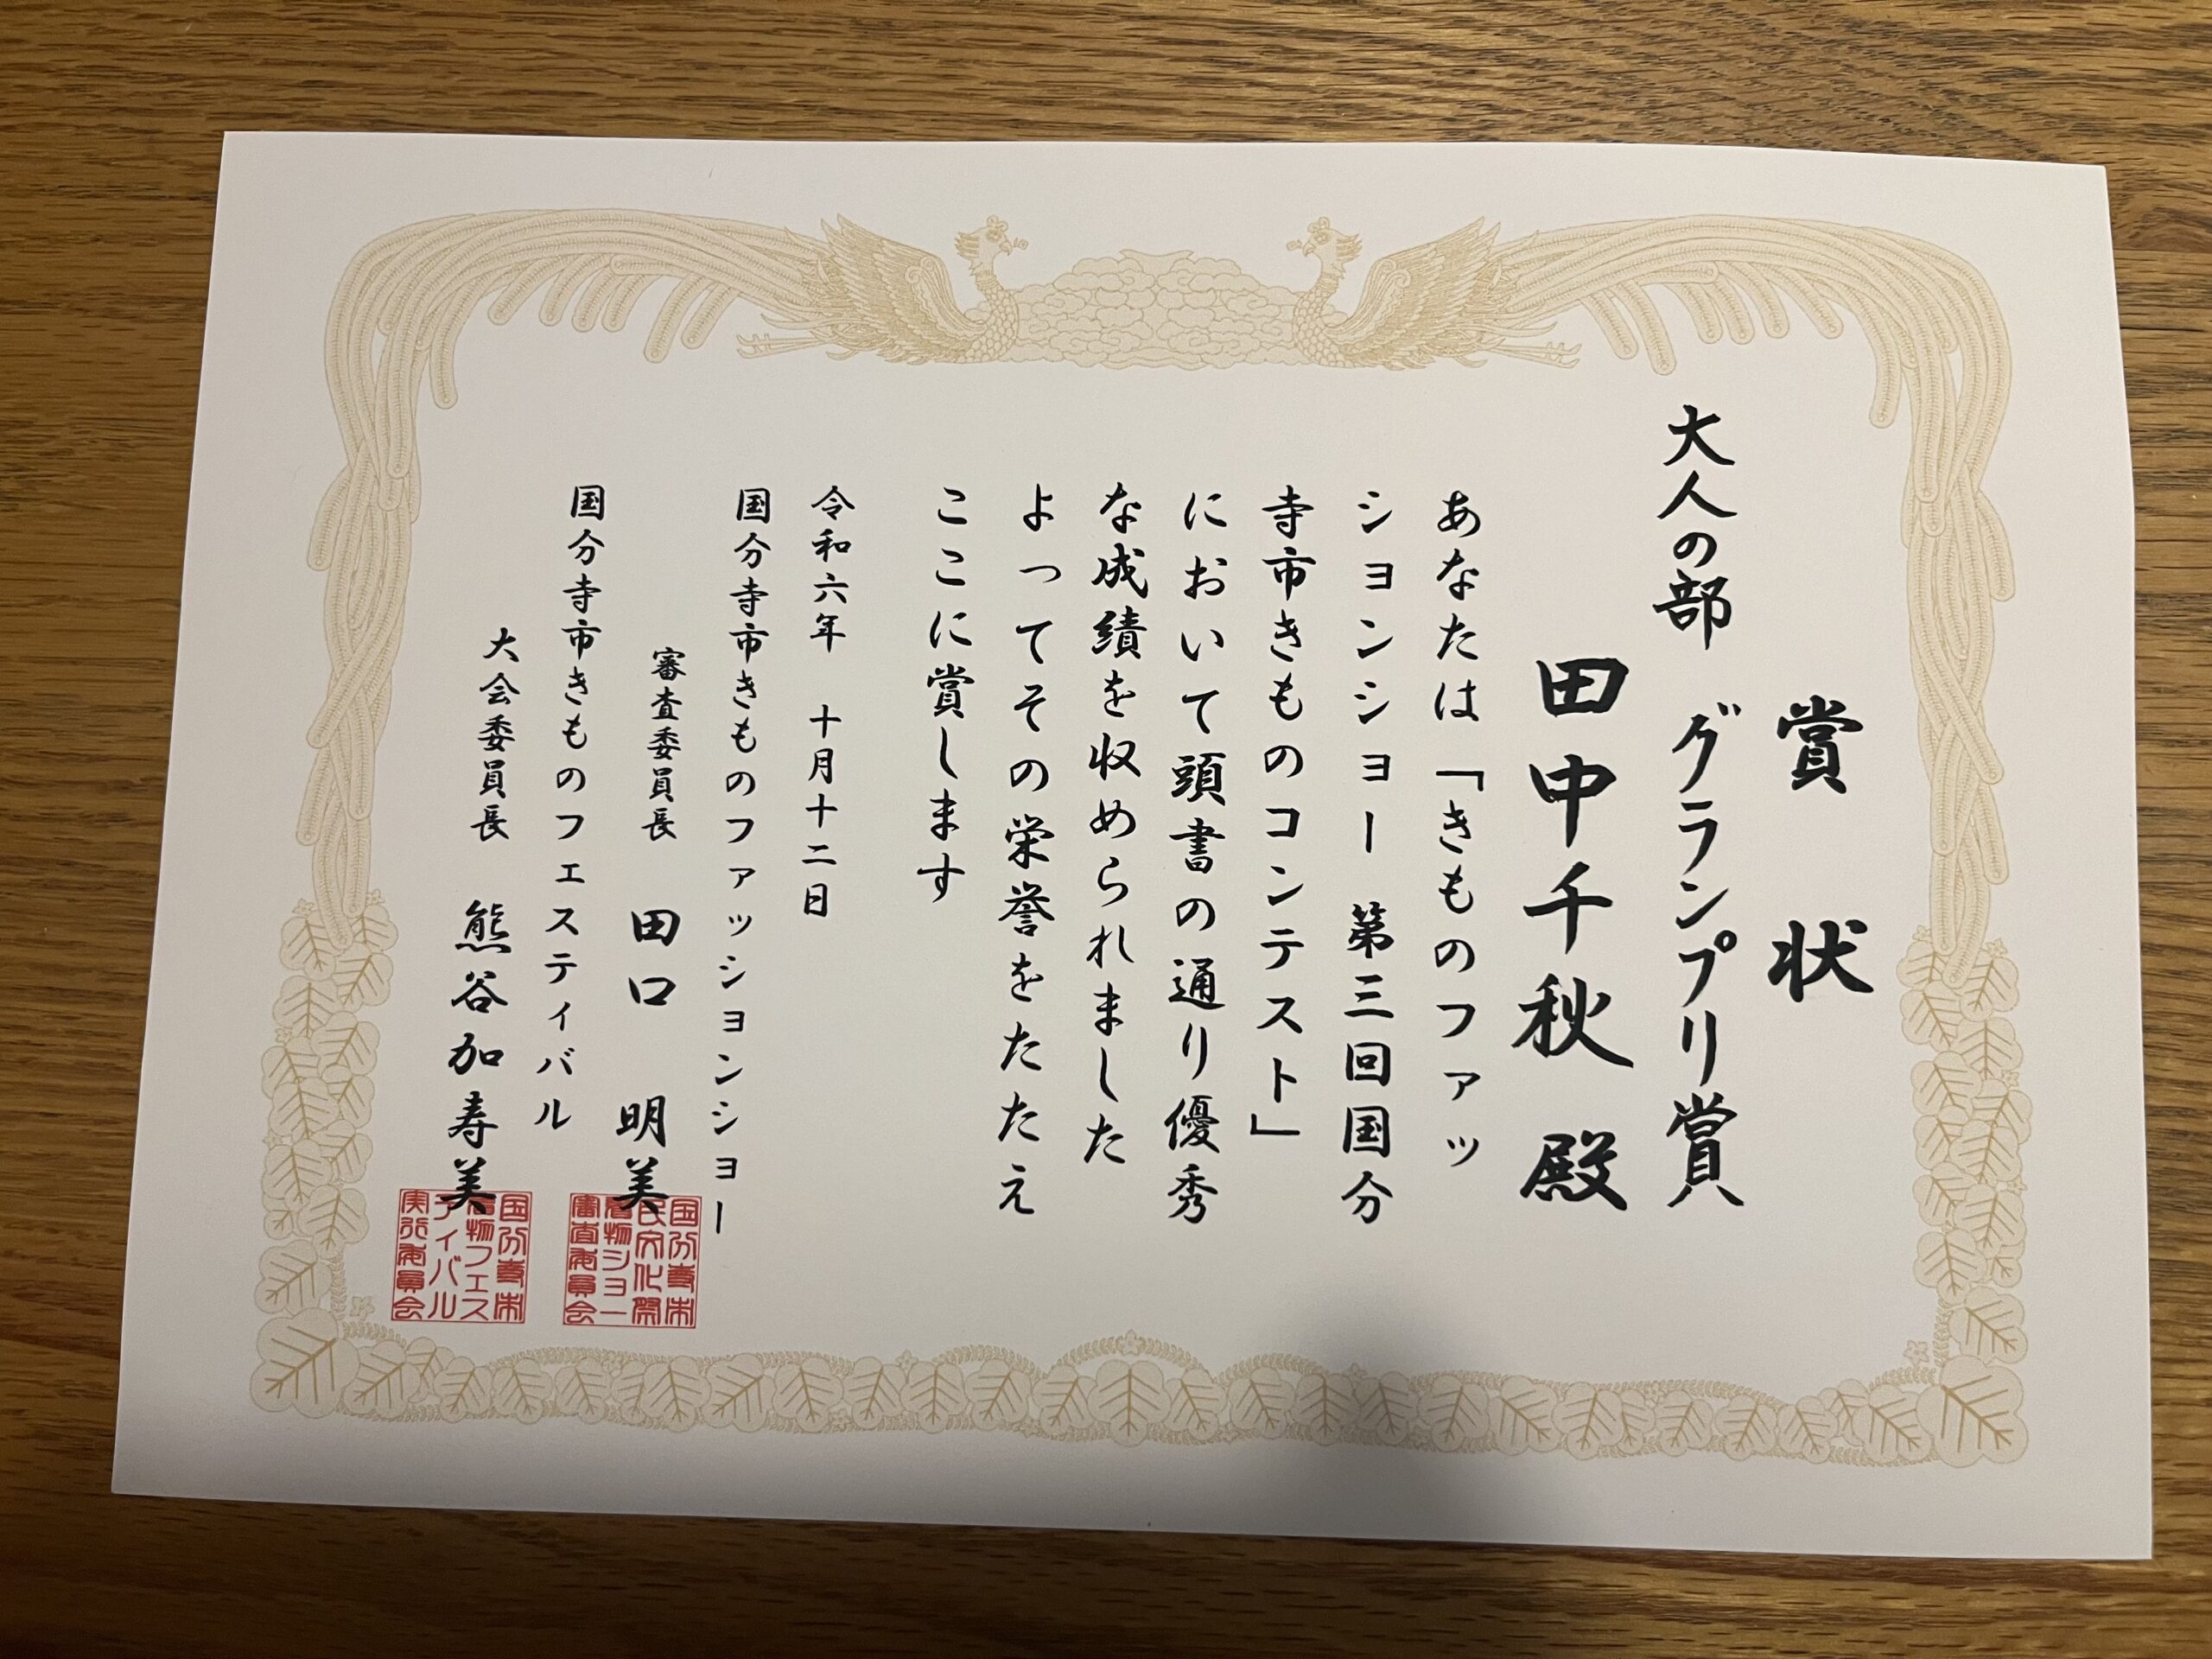 賞状
大人の部 グランプリ賞
田中千秋 殿
あなたは「きものファッ
ションショー 第三回国分
寺市きものコンテスト」
において頭書の通り優秀
な成績を収められました
よってその栄誉をたたえ
ここに賞します
令和六年 十月十二日
国分寺市きものファッションショー
審査委員長 田口 明美
国分寺市きものフェスティバル
大会委員長 熊谷加寿美
国分寺市
民文化祭
着物ショー
審査委員会
国分寺市
着物フェス
ティバル
実行委員会